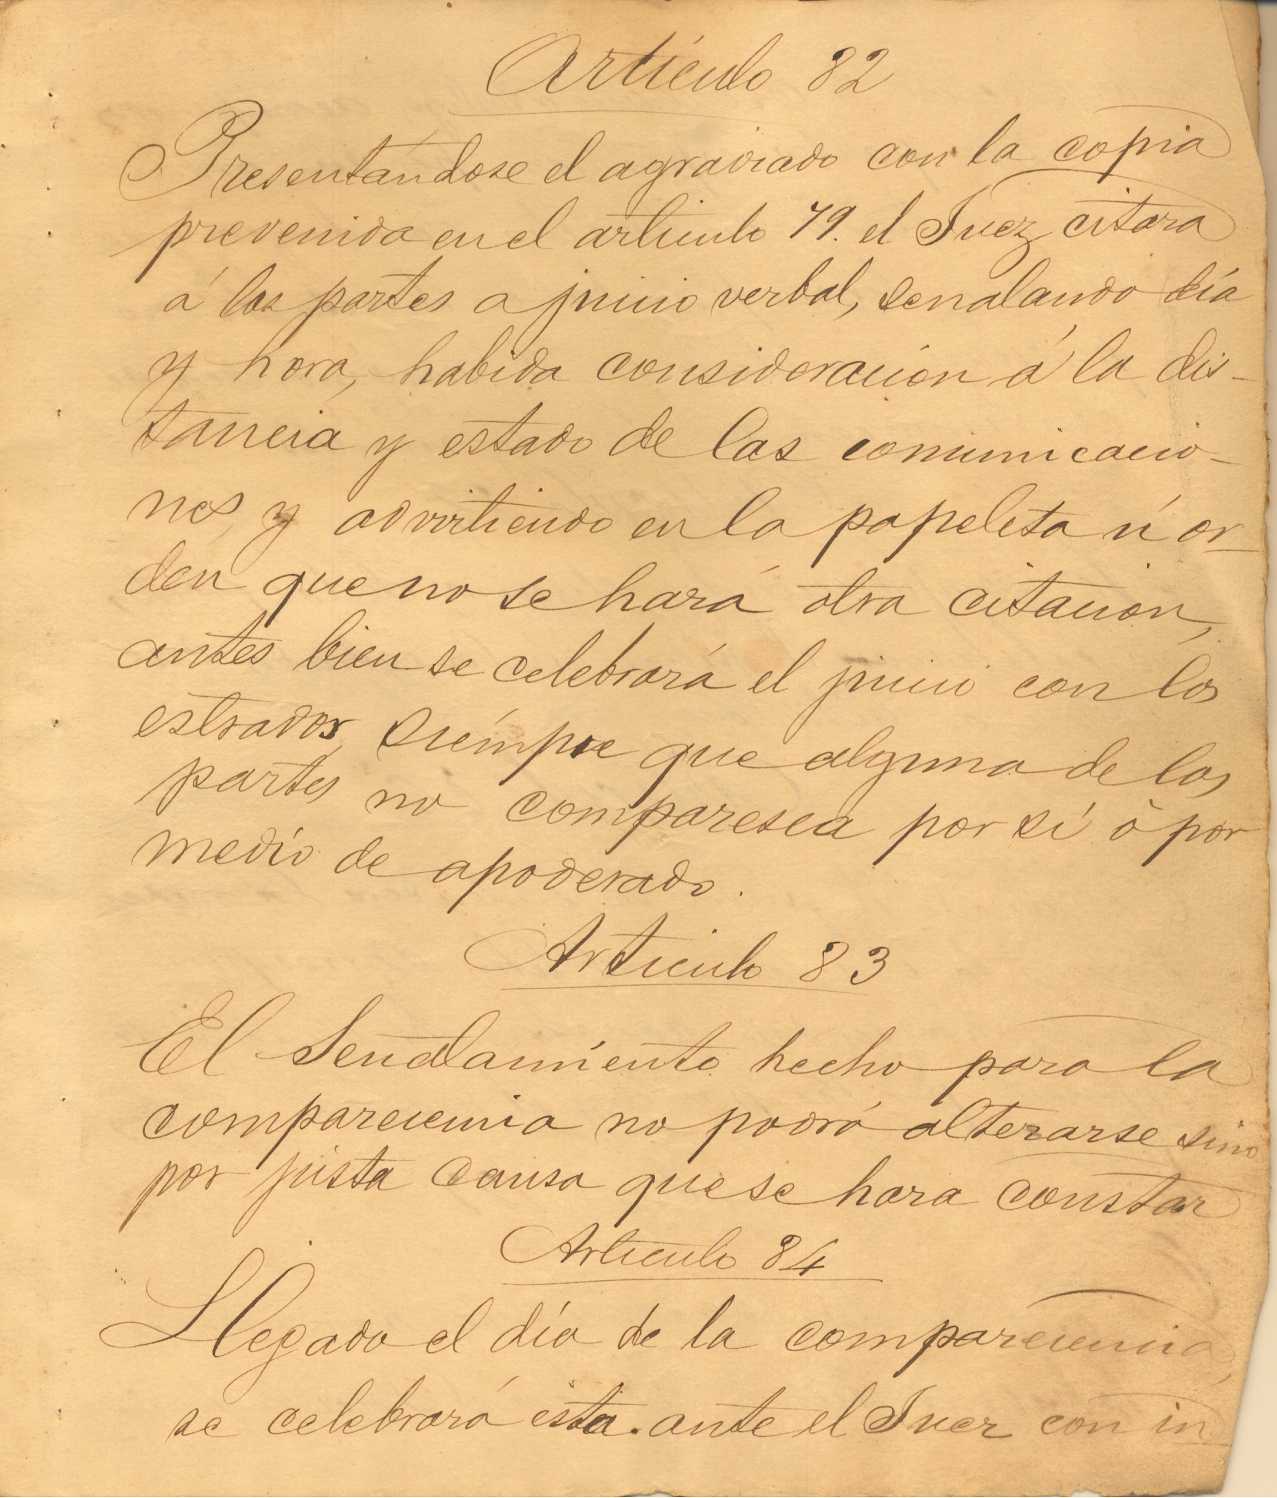 Artículo 82
Presentándose el agraviado con la copia
prevenida en el artículo 79. el Juez citara
á las partes a juicio verbal, senalando día
y hora, habida consideración á la dis-
tancia y estado de las comunicacio-
nes, y advirtiendo en la papeleta ú or-
den que no se hará otra citacion,
antes bien se celebrará el juicio con los
estrados, siémpre que alguna de las
partes no comparesca por sí ò por
medio de apoderado.
Artículo 83
El Senalamiento hecho para la
comparecencia no podrá alterarse sino
por justa causa que se hara constar
Artículo 84
Llegado el día de la comparecencia,
se celebrará ésta. ante el Juez con in